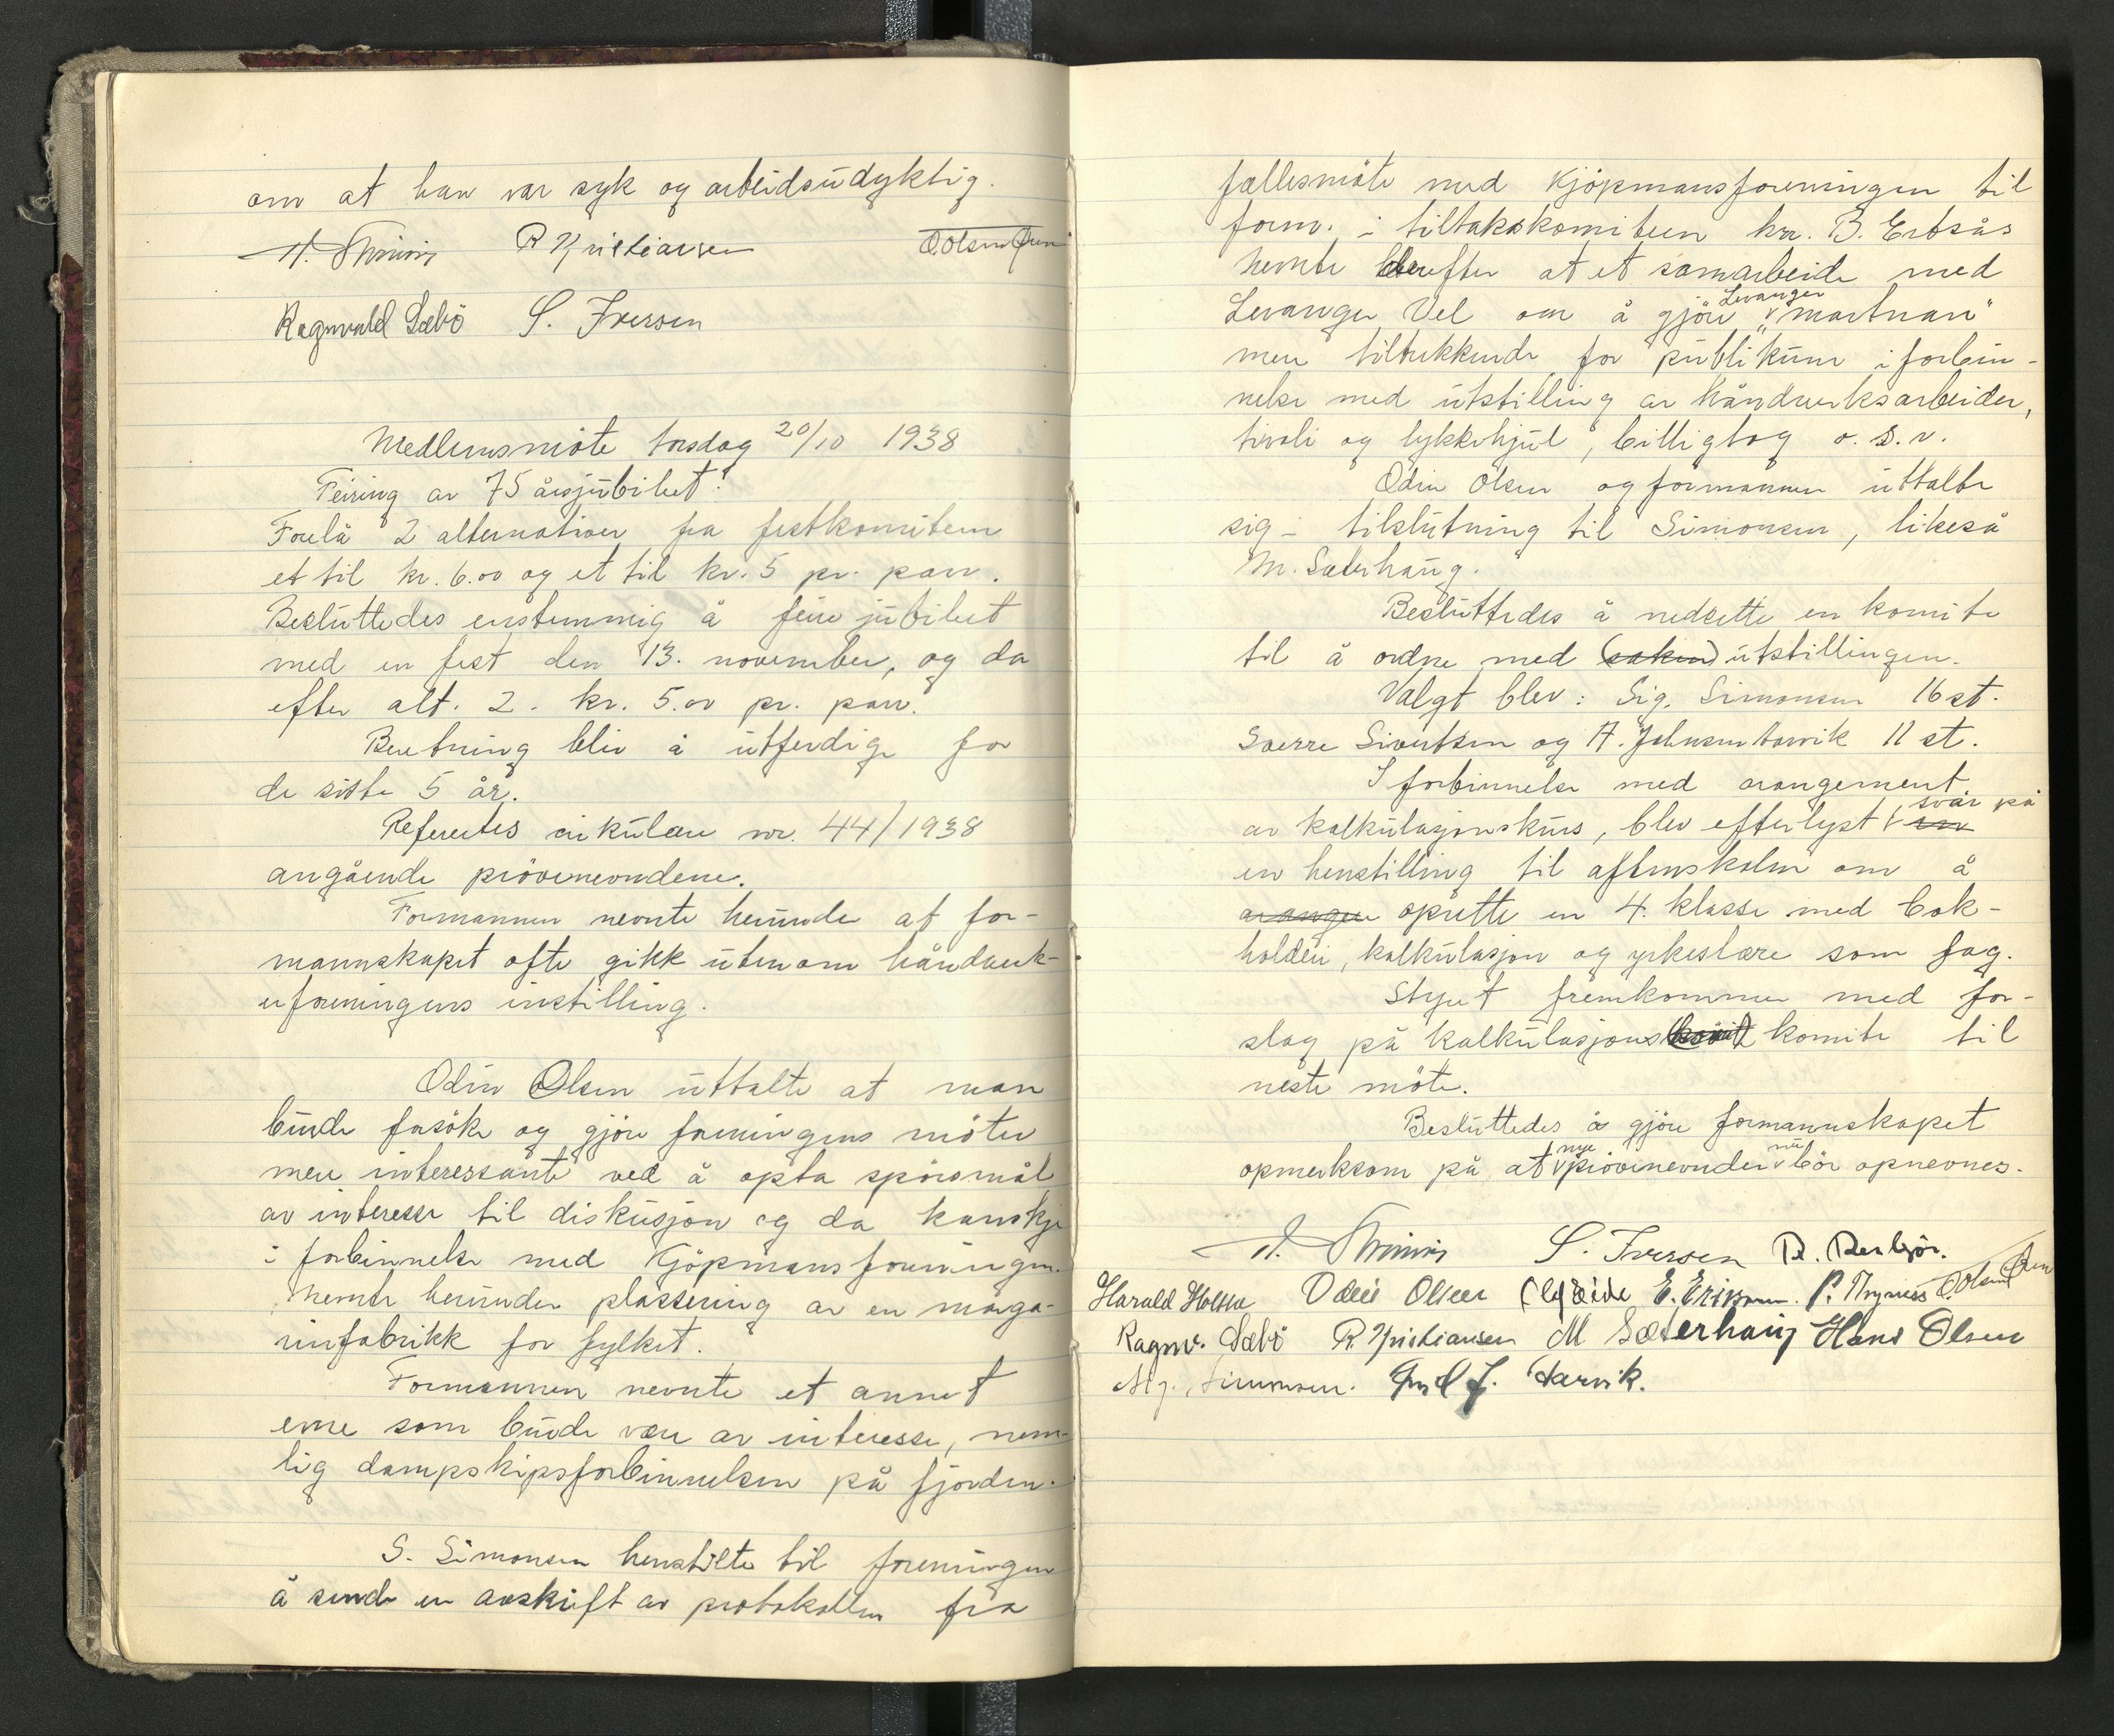 om at han var syk og arbeidsudyktig.
R Kristiansen O. Olsen Jun
Ragnvald Sæbö S. Iversen
Medlemsmöte torsdag 20/10 1938
Feiring av 75 årsjubileet.
Forelå 2 alternativer fra festkomiteen
et til kr. 6.00 og et til kr. 5 pr. par.
Besluttedes enstemmig å feire jubileet
med en fest den 13. november, og da
efter alt. 2. kr. 5.00 pr. par.
Beretning blir å utferdige for
de siste 5 år.
Refertes cirkulære nr. 44/1938
angående prövenevndene.
Formannen nevnte herunder at for-
mannskapet ofte gikk utenom håndverk-
erforeningens instilling.
Odin Olsen uttalte at man
burde forsöke og gjöre foreningens möter
mere interessante ved å opta spörsmål
av interesse til diskusjon og da kanskje
i forbinnelse med Kjöpmansforeningen.
Nevnte herunder plassering av en marga-
rinfabrikk for fylket.
Formannen nevnte et annet
emne som burde være av interesse, nem-
lig dampskipsforbinnelsen på fjorden.
S. Simonsen henstilte til foreningen
å sende en avskrift av protokollen fra
fællesmöte med Kjöpmansforeningen til
form. i tiltakskomiteen hr. B. Ertsås
nevnte derefter at et samarbeide med
Levanger Vel om å gjöre Levanger "martnan"
mere tiltrekkende for publikum i forbin-
nelse med utstilling av håndverksarbeider,
tivoli og lykkehjul, billigtog o.s.v.
Odin Olsen og formannen uttalte
sig i tilslutning til Simonsen, likeså
M. Sæterhaug.
Besluttedes å nedsette en komite
til å ordne med (saken) utstillingen.
Valgt blev: Sig. Simonsen 16 st.
Sverre Sivertsen og A. JohnsenВарvik 11 st.
I forbinnelse med arangement
av kalkulasjonskurs, blev efterlyst svar på
en henstilling til aftenskolen om å
arangere oprette en 4. klasse med bok-
holderi, kalkulasjon og yrkeslære som fag.
Styret fremkommer med for-
slag på kalkulasjons komite til
neste möte.
Besluttedes å gjöre formannskapet
opmerksom på at nye prövenevnder nu bör opnevnes.
S. Iversen
Harald Holten Odin Olsen E. Erikson O. Olsen Jun
Ragnv. Sæbö R. Kristiansen M Sæterhaug Hans Olsen
Sig. Simonsen.